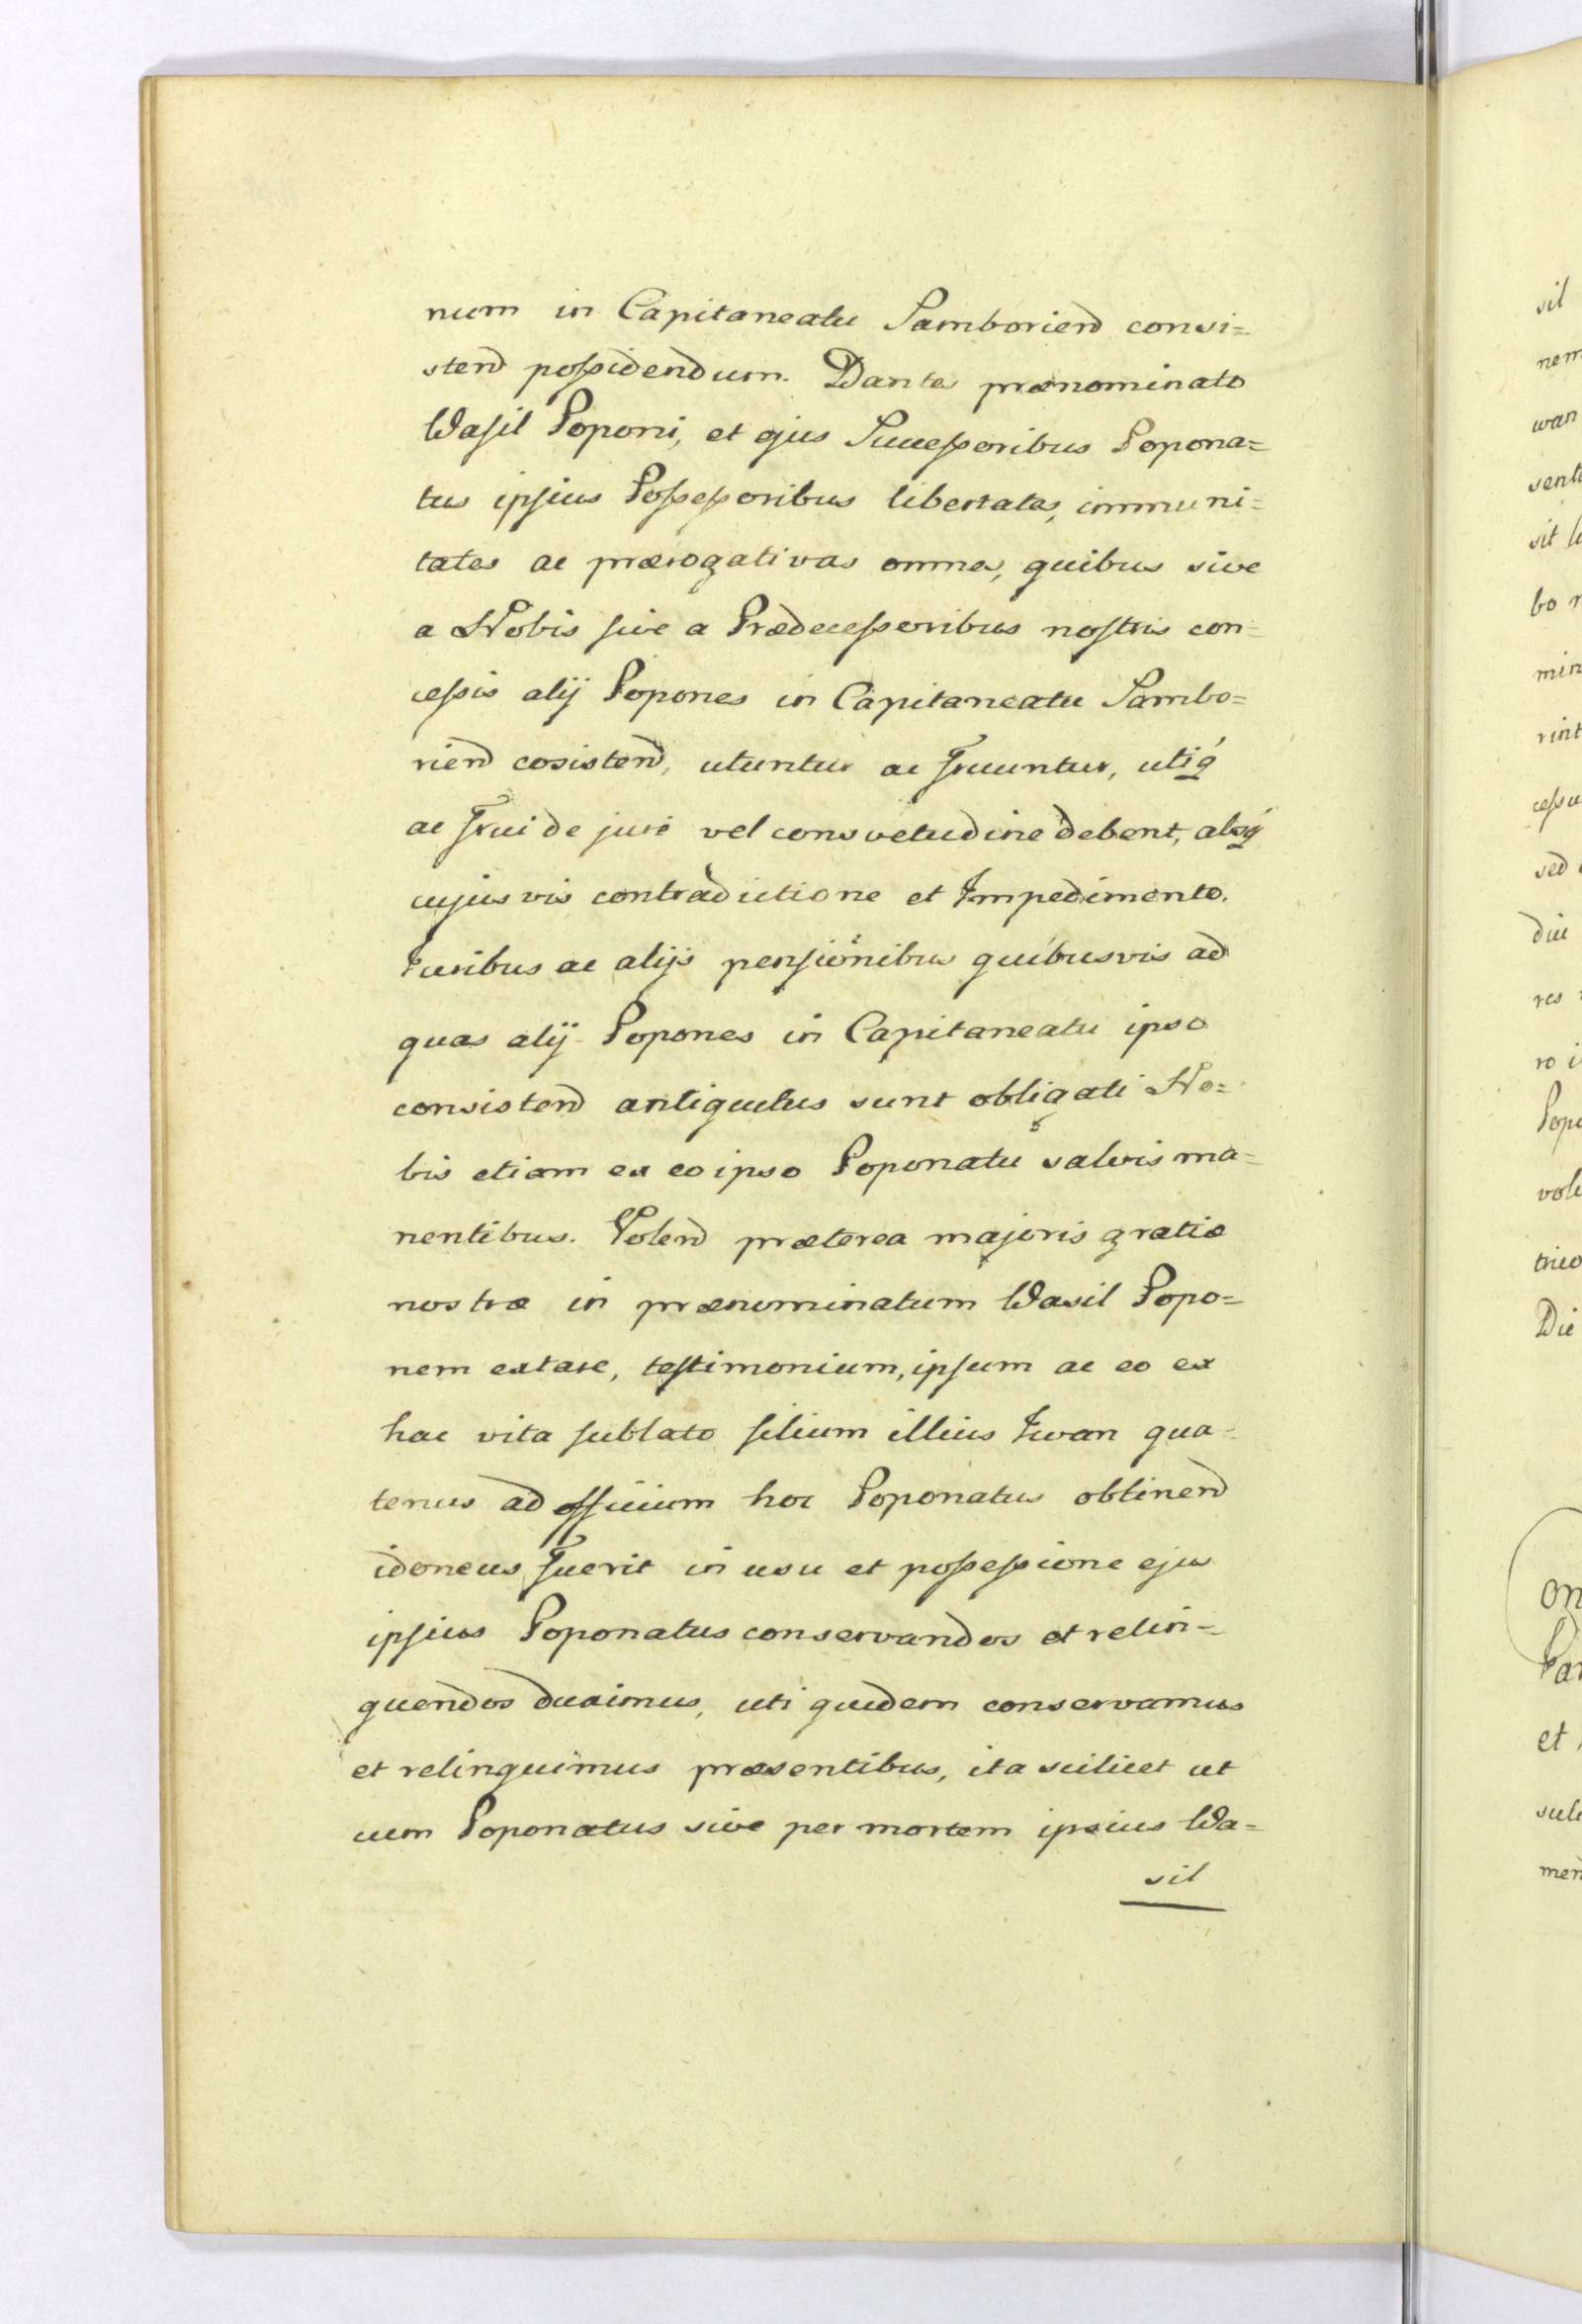 num in Capitaneatu Samborien consi=
sten possidendum. Dantes prænominato
Wasil Poponi, et ejus Successoribus Popona=
tus ipsius Possessoribus libertates, immuni=
tates ac prærogativas omnes, quibus sive
a Nobis sive a Prædecessoribus nostris con=
cessis alij Popones in Capitaneatu Sambo=
rien cosisten, utuntur ac fruuntur, utiq́
ac frui de jure vel consvetudine debent, absq́
cujusvis contradictione et Impedimento.
Iuribus ac alijs pensionibus quibusvis ad
quas alij Popones in Capitaneatu ipso
consisten antiquitus sunt obligati No=
bis etiam ex eo ipso Poponatu salvis ma=
nentibus. Volen præterea majoris gratiæ
nostræ in prænominatum Wasil Popo=
nem extare, testimonium, ipsum ac eo ex
hac vita sublato filium illius Iwan qua=
tenus ad officium hoc Poponatus obtinen
idoneus fuerit in usu et possessione ejus
ipsius Poponatus conservandos et relin=
quendos duximus, uti quidem conservamus
et relinquimus præsentibus, ita scilicet ut
cum Poponatus sive per mortem ipsius Wa=
sil
sil
nem
wan
sit
bo
min
rint
sed
dui
res
ro
Popo
Die
et